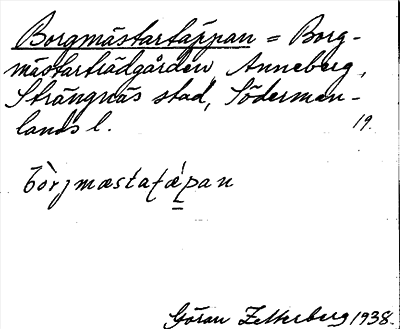 Borgmästartäppan = Borg-
mästarträdgården, Anneberg,
Strängnäs stad, Söderman-
lands l. 19.
bòrjmæstatæ̀pan
Göran Zetterberg 1938.